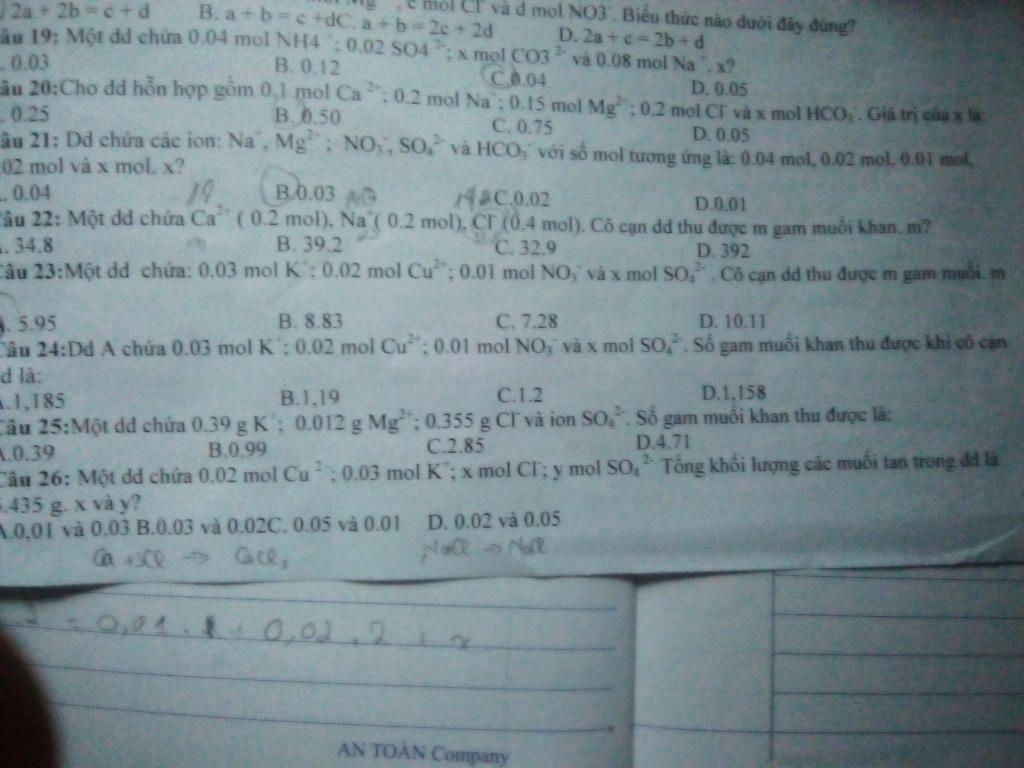 2a + 2b = c + d B. a + b = c +dC. a + b = 2c + 2d D. 2a + c = 2b + d
c mol Cl⁻ và d mol NO3⁻. Biểu thức nào dưới đây đúng?
âu 19: Một dd chứa 0.04 mol NH4⁺; 0.02 SO4²⁻; x mol CO3²⁻ và 0.08 mol Na⁺. x?
. 0.03 B. 0.12 C.0.04 D. 0.05
âu 20:Cho dd hỗn hợp gồm 0,1 mol Ca²⁺; 0.2 mol Na⁺; 0.15 mol Mg²⁺; 0.2 mol Cl⁻ và x mol HCO₃⁻. Giá trị của x là:
. 0.25 B. 0.50 C. 0.75 D. 0.05
âu 21: Dd chứa các ion: Na⁺, Mg²⁺; NO₃⁻, SO₄²⁻ và HCO₃⁻ với số mol tương ứng là: 0.04 mol, 0.02 mol, 0.01 mol,
02 mol và x mol. x?
. 0.04 B.0.03 C.0.02 D.0.01
âu 22: Một dd chứa Ca²⁺ ( 0.2 mol), Na⁺( 0.2 mol), Cl⁻ (0.4 mol). Cô cạn dd thu được m gam muối khan. m?
. 34.8 B. 39.2 C. 32.9 D. 392
Câu 23:Một dd chứa: 0.03 mol K⁺; 0.02 mol Cu²⁺; 0.01 mol NO₃⁻ và x mol SO₄²⁻. Cô cạn dd thu được m gam muối. m
. 5.95 B. 8.83 C. 7.28 D. 10.11
Câu 24:Dd A chứa 0.03 mol K⁺; 0.02 mol Cu²⁺; 0.01 mol NO₃⁻ và x mol SO₄²⁻. Số gam muối khan thu được khi cô cạn
d là:
A.1,185 B.1,19 C.1.2 D.1,158
Câu 25:Một dd chứa 0.39 g K⁺; 0.012 g Mg²⁺; 0.355 g Cl⁻ và ion SO₄²⁻. Số gam muối khan thu được là:
A.0.39 B.0.99 C.2.85 D.4.71
Câu 26: Một dd chứa 0.02 mol Cu²⁺; 0.03 mol K⁺; x mol Cl⁻; y mol SO₄²⁻ Tổng khối lượng các muối tan trong dd là
.435 g. x và y?
A.0,01 và 0.03 B.0.03 và 0.02C. 0.05 và 0.01 D. 0.02 và 0.05
= 0,01 . 1 + 0,02 . 2 + x
AN TOÀN Company